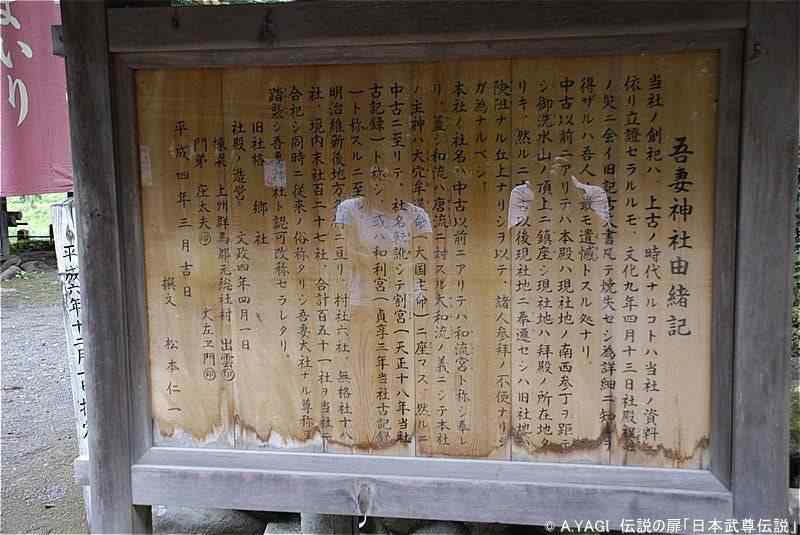 吾妻神社由緒記
当社ノ創祀ハ、上古ノ時代ナルコトハ当社ノ資料ニ
依リ立證セラルルモ、文化九年四月十三日社殿
ノ災ニ会イ旧記古文書凡テ焼失セシ為詳細ニ知
得ザルハ吾人ノ最モ遺憾トスル処ナリ。
中古以前ニアリテハ本殿ハ現社地ノ南西参丁ヲ距テ
シ御洗水山ノ頂上ニ鎮座シ現社地ハ拝殿ノ所在地タ
リキ、然ルニ中古以後現社地ニ奉遷セシハ旧社地
険阻ナル丘上ナリシヲ以テ、諸人参拜ノ不便ナリシ
ガ為ナルベシ。
本社ノ社名ハ中古以前ニアリテハ和流宮ト称シ奉レ
リ、蓋シ和流ハ唐流ニ対スル大和流ノ義ニシテ本社
ノ主神ハ大穴牟遅(大国主命)ニ座マス、然ルニ
中古ニ至リテ、社名転訛シテ割宮(天正十八年当社
古記録)ト称シ、或ハ和利宮(貞享三年当社古記録
一ト称スルニ至
明治維新後地方 村ニ亘リ、村社六社、無格社十八
社、境内末社百二十七社、合計百五十一社ヲ当社ニ
合祀シ同時ニ従来ノ俗称タリシ吾妻大社ナル尊称ヲ
踏襲シ吾妻神社ト認可改称セラレタリ。
旧社格 郷社
社殿ノ造営 文政四年四月一日
棟梁 上州群馬郡元総社村 出雲 印
門弟 座太夫 印 丈左ヱ門 印
平成四年三月吉日
撰文 松本仁一
まいり
平成六年十二月
© A.YAGI 伝説の扉「日本武尊伝説」